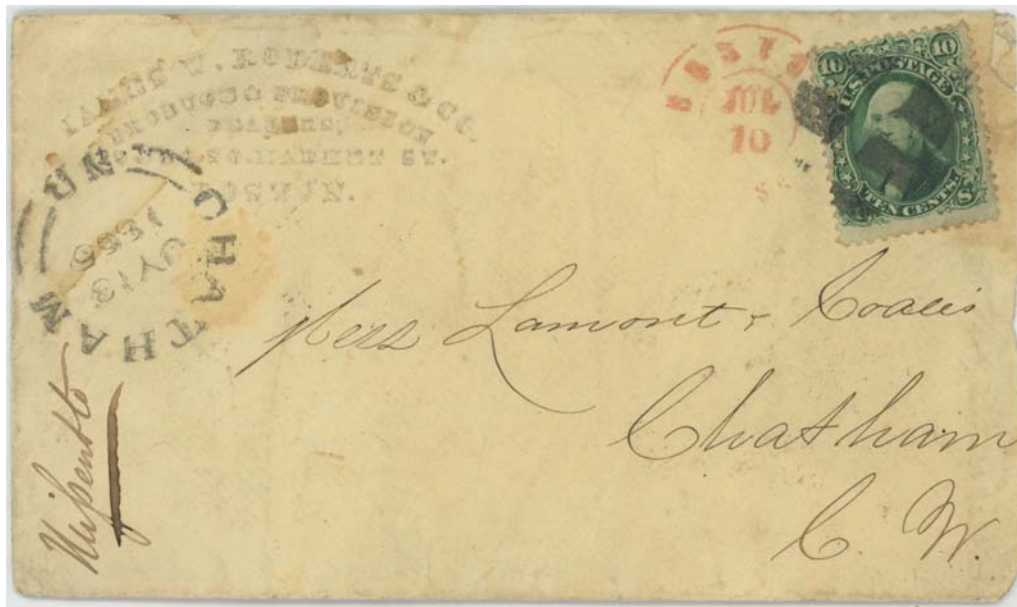 JAMES W. ROBERTS & CO.
PRODUCE & PROVISION
DEALERS,
MARKET ST.
BOSTON.
BOSTON
JUL
10
10
10
U.S. POSTAGE
TEN CENTS.
U
S
CHATHAM N.B.
JY 13
Missent to
Mess Lamont &
Chatham
C. W.